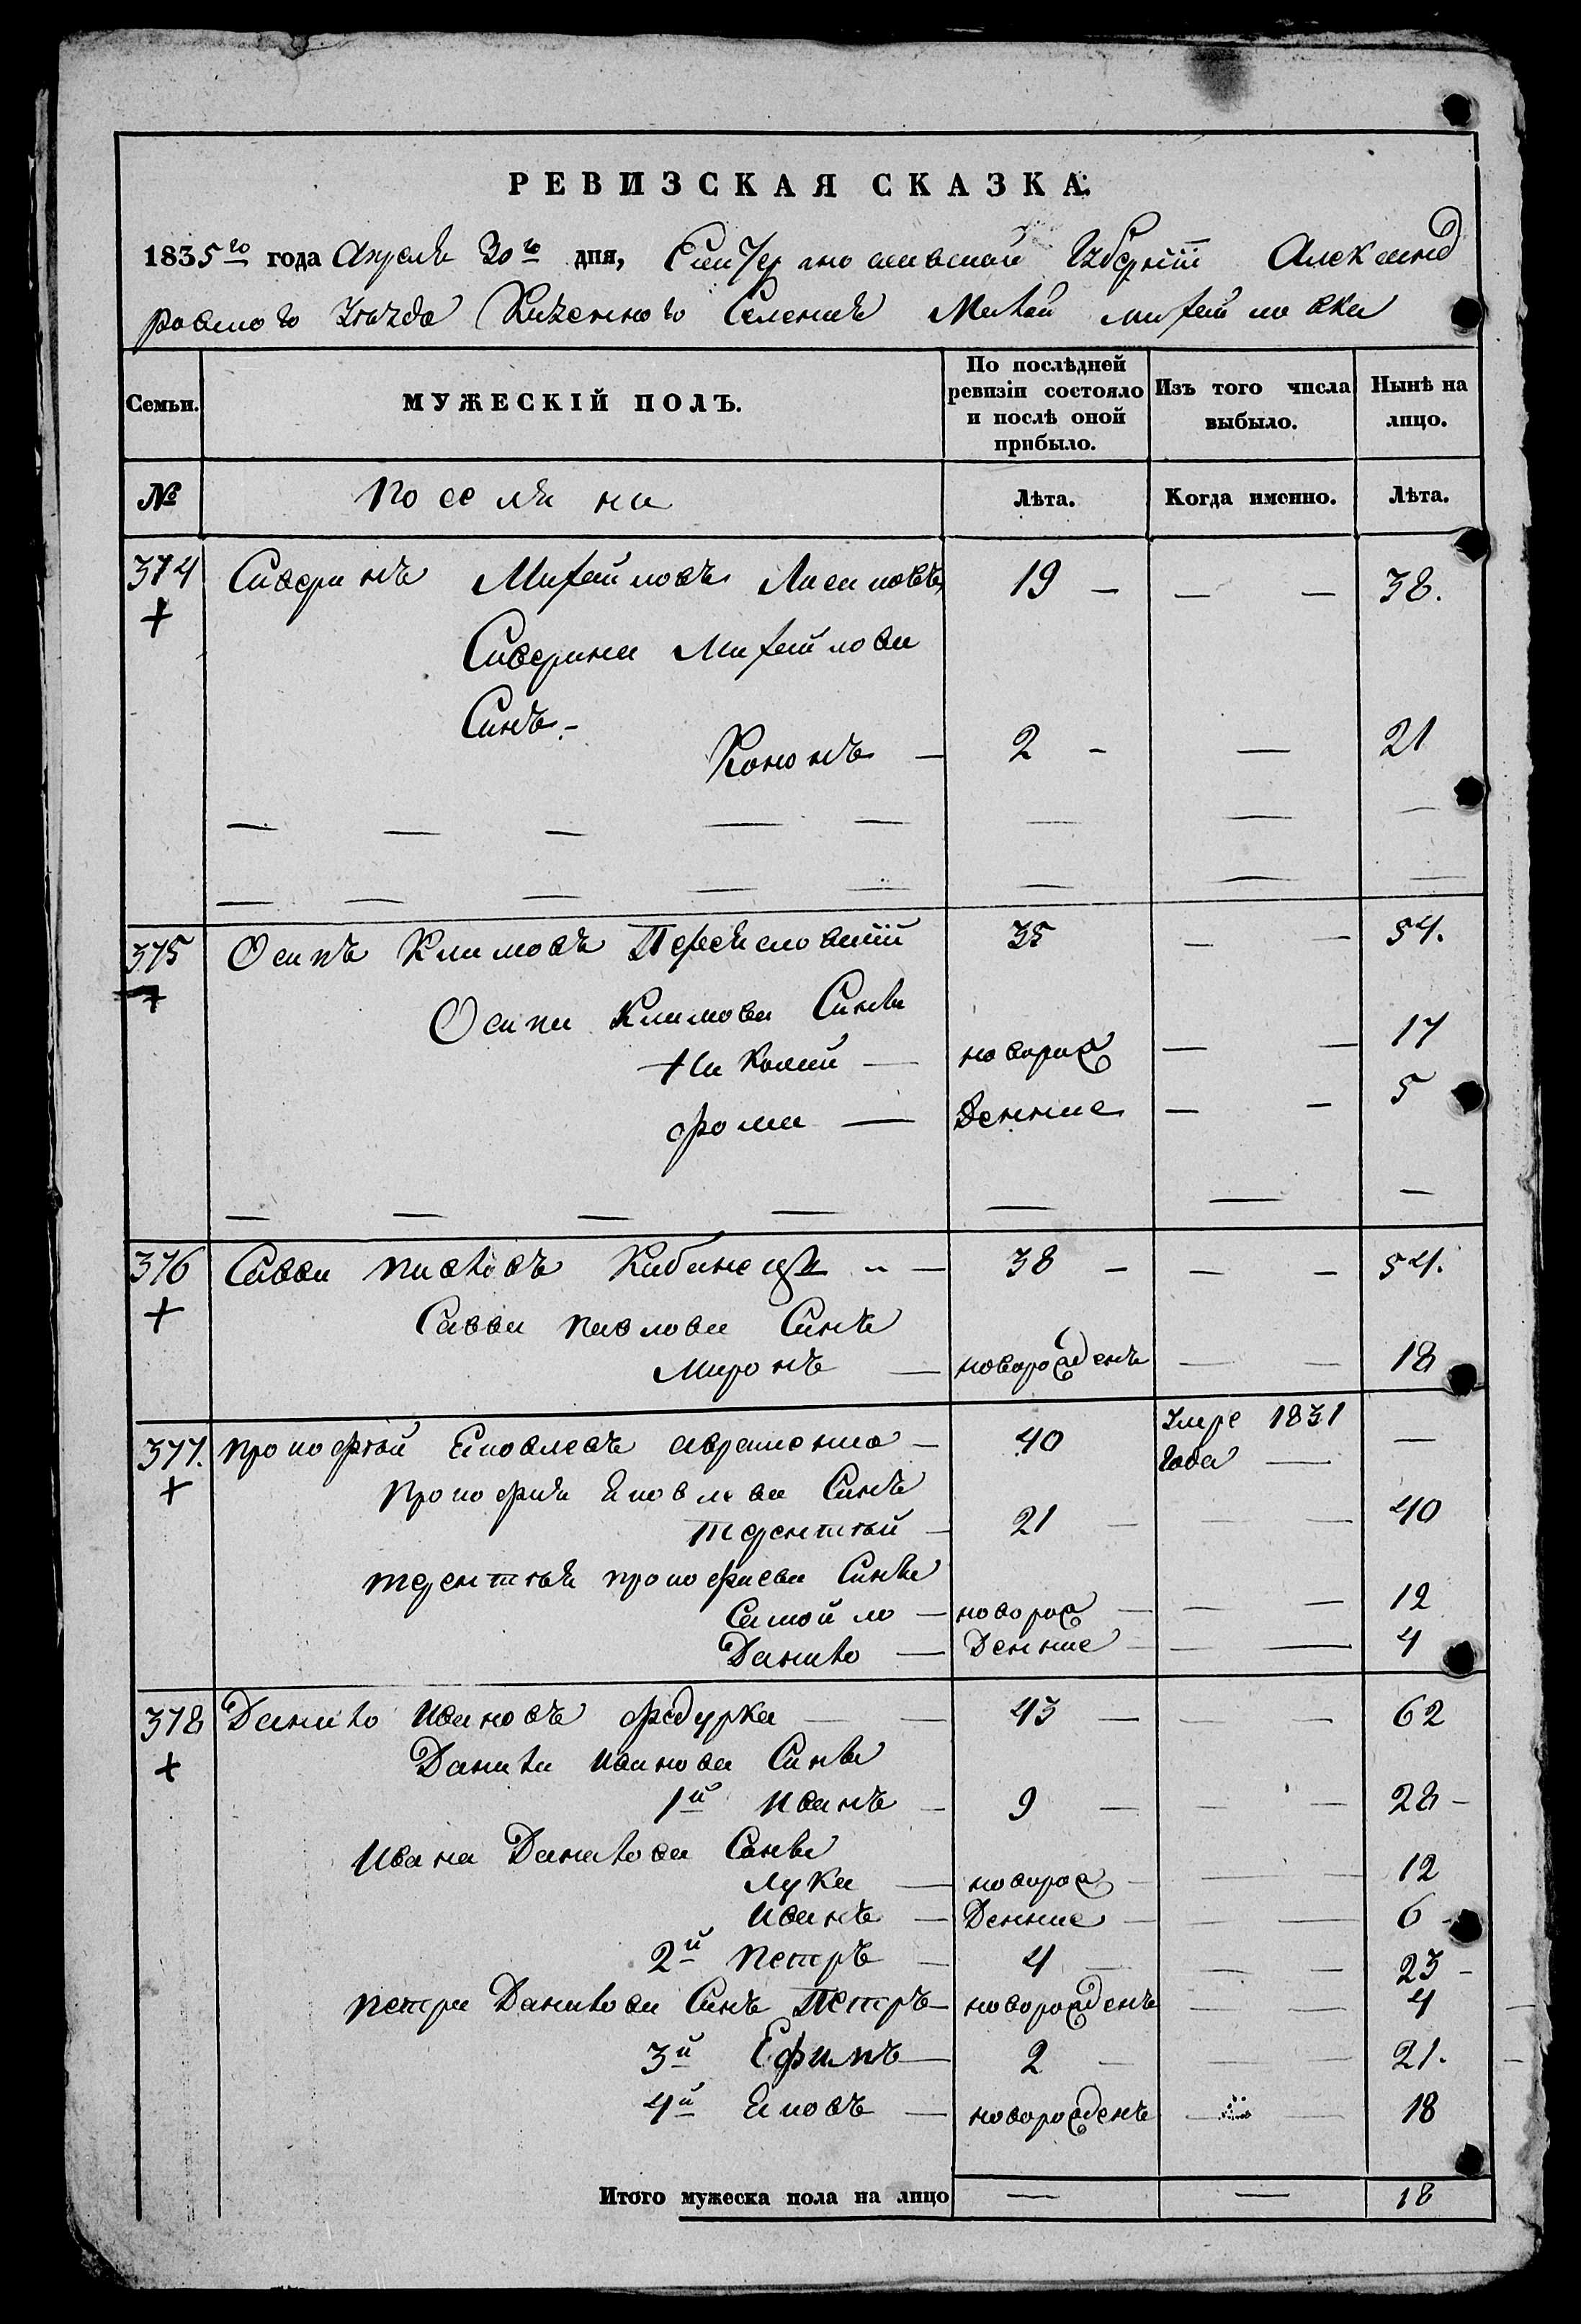 РЕВИЗСКАЯ СКАЗКА.
1835го года Апреля 30го дня, Екатеринославской Губернїи Александ
ровского уезда Казенного Селения Малой михайловки
Семьи. МУЖЕСКІЙ ПОЛЪ. По послѣдней ревизіи состояло и послѣ оной прибыло. Изъ того числа выбыло. Нынѣ на лицо.
№ Поселяна Лѣта. Когда именно. Лѣта.
374 Саверинъ Михайловъ 19 — — — 38.
+ Саверина Михайлова
Синъ —
Кононъ — 2 — — 21
375 Осипъ Климовъ Переясловский 35 — — 54.
+ Осипа Климова Синвя
Николай — новорож — — 17
фома — денние — — 5
376 Савва павловъ — 38 — — — 54.
+ Савви павлова Синъ
Миронъ — новорожденъ — — 18
377. прокофтей Яковлевъ авраменко — 40 Умре 1831 —
+ года —
прокофия Яковлева Синъ
терентгей — 21 — — — 40
терентгея прокофиева Синвя
Самойло — новорож — — — 12
Данило — Денние — — — 4
378 Данило Ивановъ федурка — — 43 — — — 62
+ Данила Иванова Синвя
1й Иванъ — 9 — — — 28 —
Ивана Данилова Синвя
Лука — новорож — — — 12
Иванъ — Денние — — — 6 —
2й петръ — 4 — — — 23 —
петра Данилова Синъ Петръ — новорожденъ — — 4
3й Ефимъ — 2 — — — 21.
4й Яковъ — новорожденъ — — 18
Итого мужеска пола на лицо — — 18